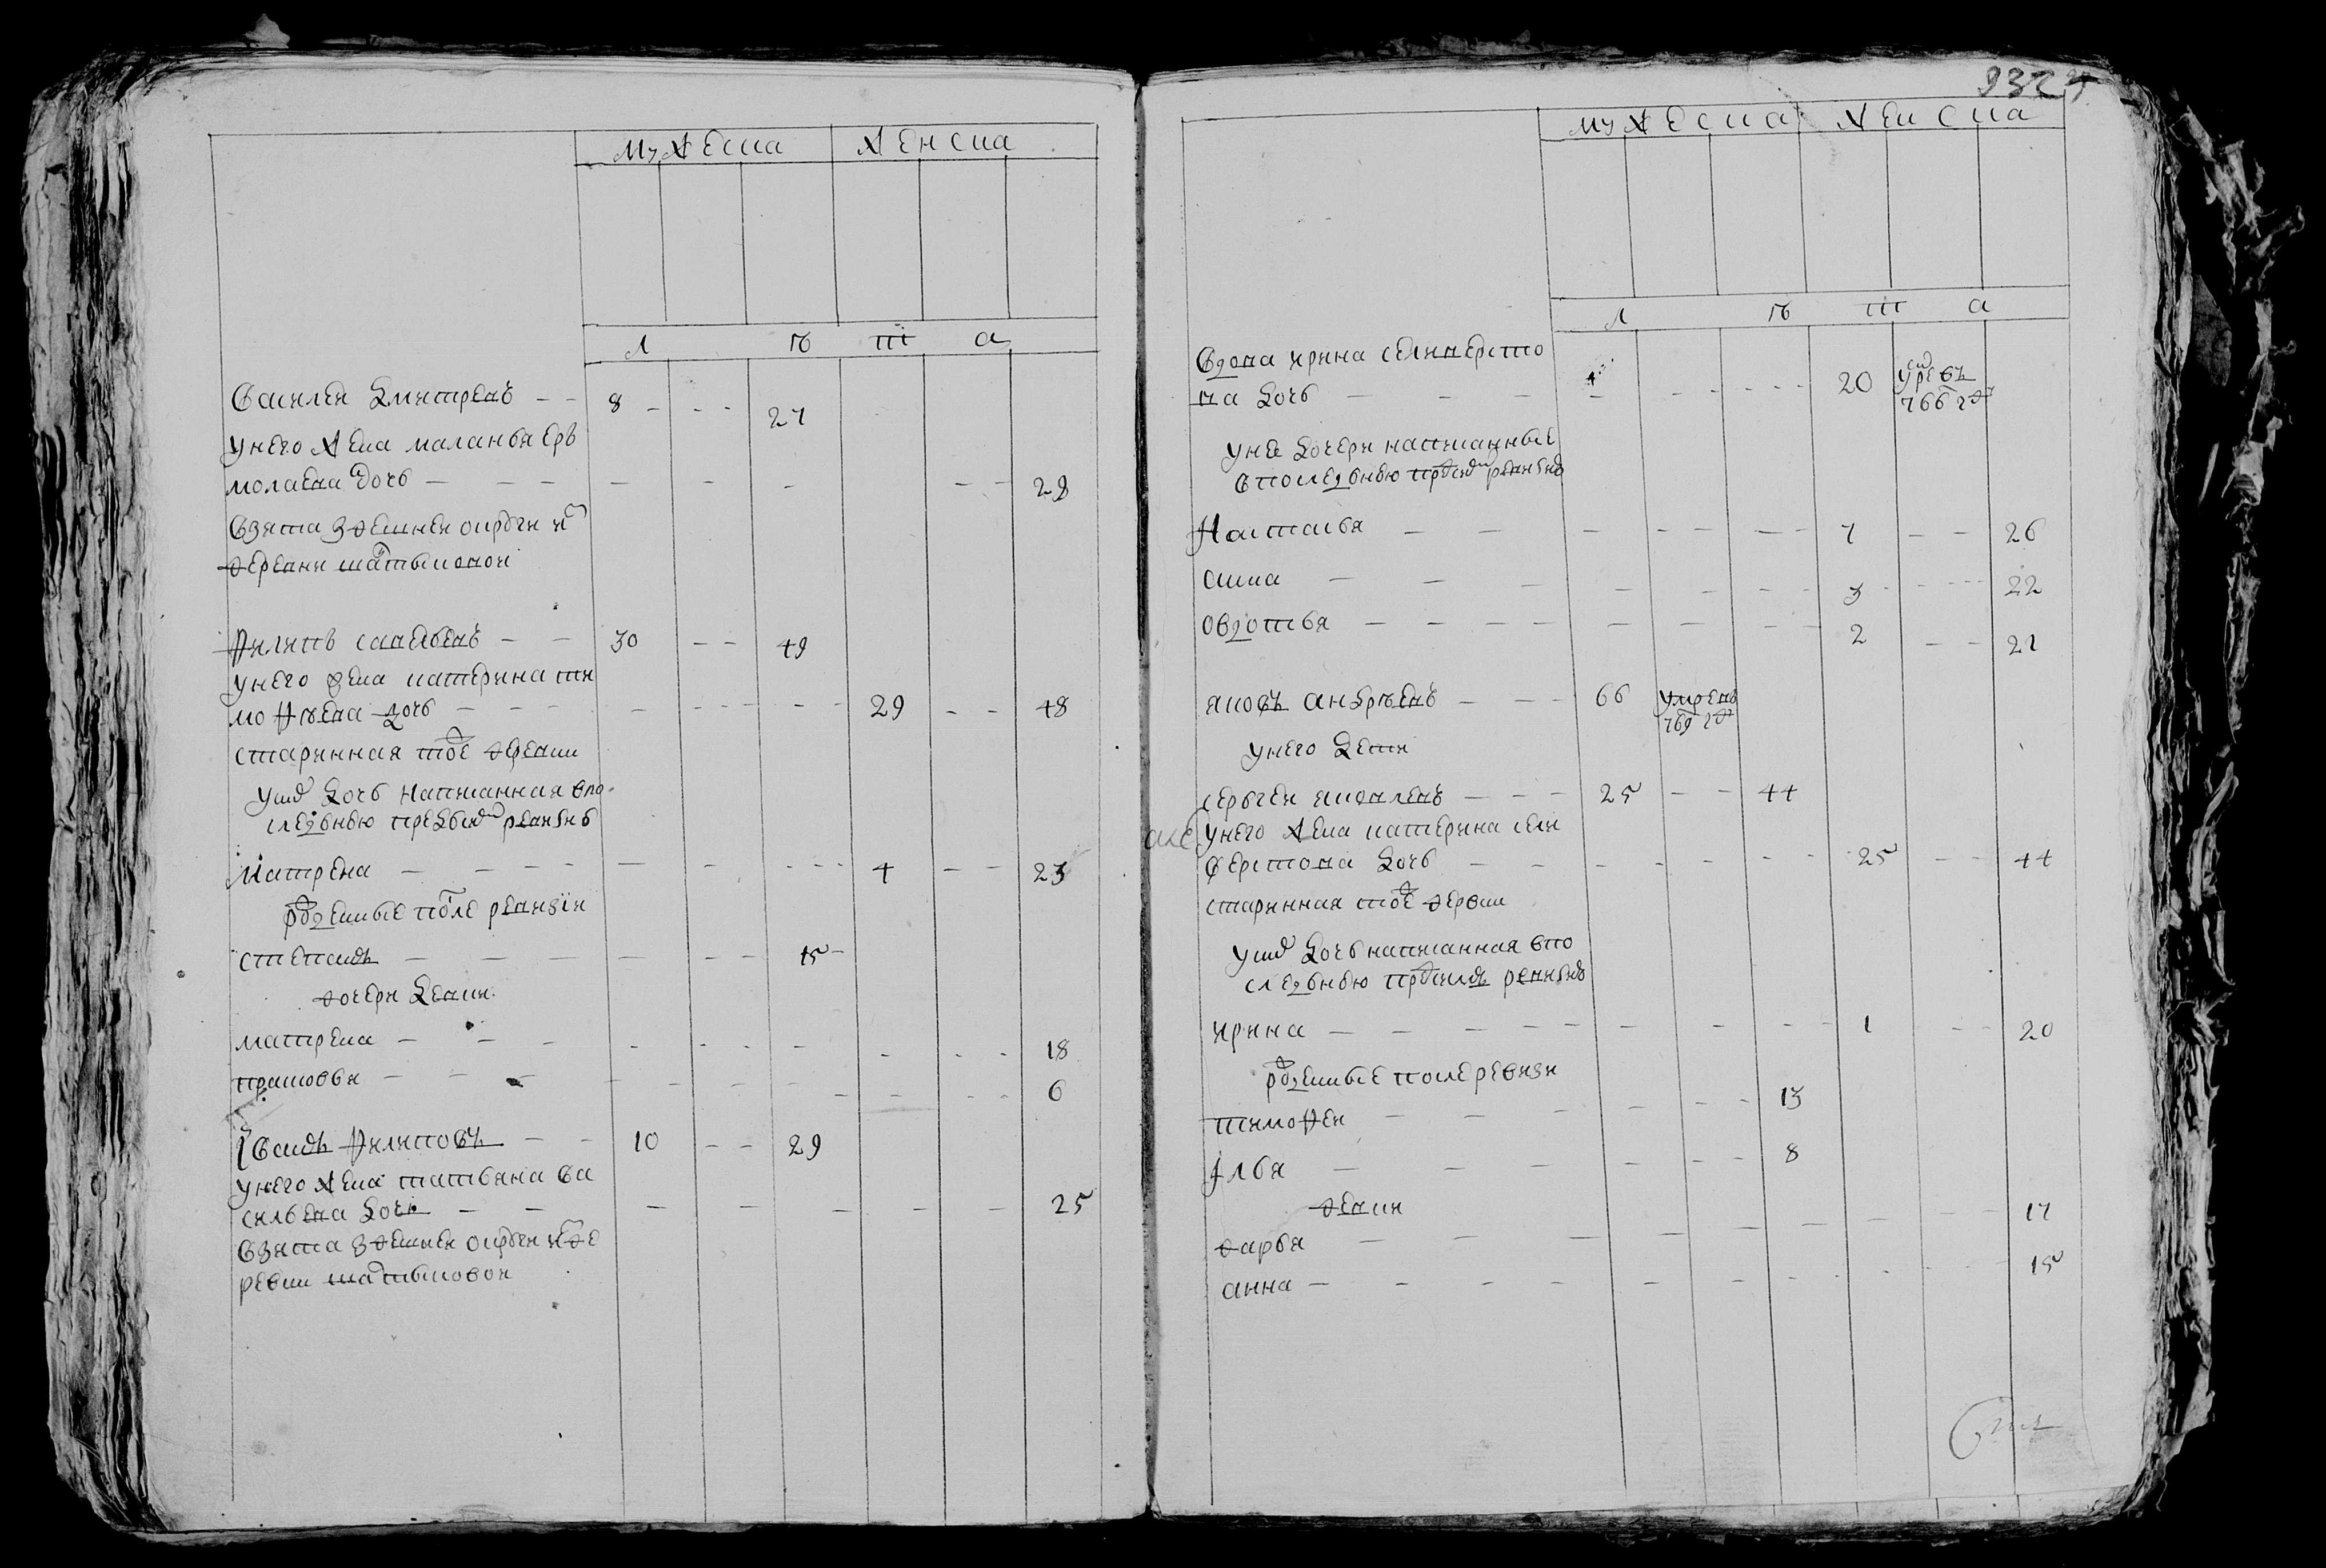 мужеска женска
л ѣ т а
Василей дмитреевъ 8 27
унего жена маланья ер
молаева дочь 28
взята здешней округи из
деревни шатьмовой
Филипъ савельевъ 30 49
унего жена катерина ти
мофѣева дочь 29 48
старинная тое деревни
уних дочь написанная впо
следънью пред сим ревизию
матрена 4 23
рожденные после ревизiи
степанъ 15
дочери девки
матрена 18
прасковья 6
Иванъ Филиповъ 10 29
унего жена татьяна ва
сильева дочь 25
взята здешней округи из де
ревни шатьмовой
932
мужеска женска
л ѣ т а
вдова ирина селиверсто
ва дочь 20
766 году
унее дочери написанные
впоследънью пред сим ревизию
Настасья 7 26
анна 3 22
овдотья 2 21
яковъ андрѣевъ 66 умре въ
769 году
унего дети
сергей яковлевъ 25 44
унего жена катерина сели
верстова дочь 25 44
старинная тое деревни
уних дочь написанная впо
следънью пред симъ ревизию
ирина 1 20
рожденные после ревизи
тимофей 13
Илья 8
девки
дарья 17
анна 15